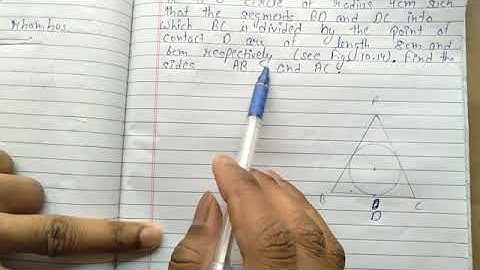 rhombos
circle of radius 4cm such
that the segments BD and DC into
which BC is divided by the point of
contact D are of length 8cm and
6cm respectively (see Fig. 10.14). Find the
sides AB and AC.
A
B
D
D
C